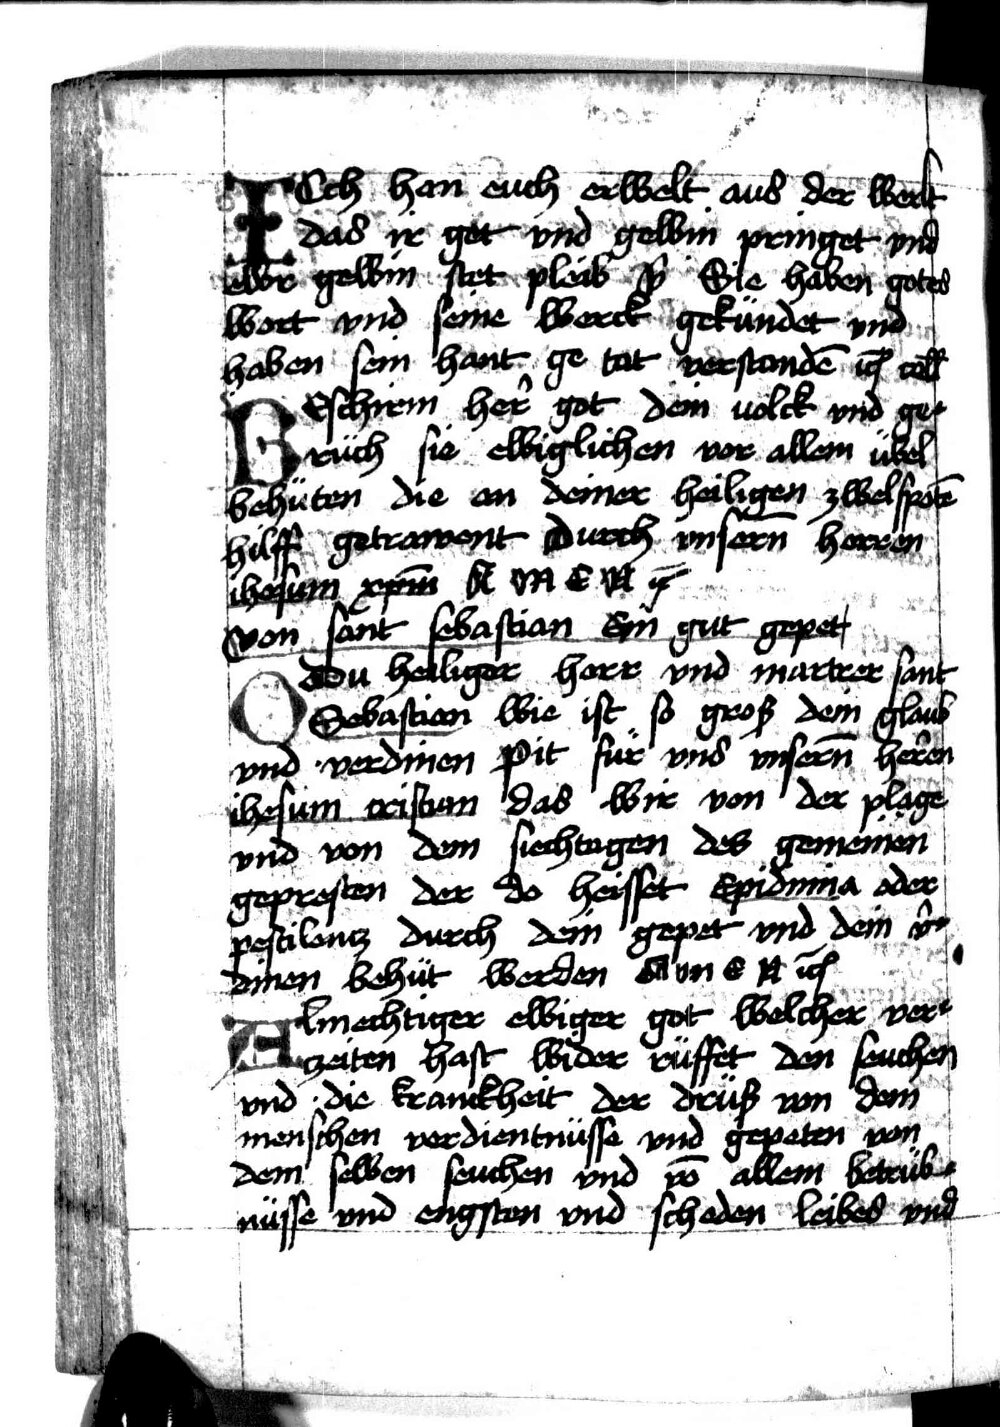 ICch han euch erwelt aus der werlt
das ir get vnd gewin pringet vnd
ewr gewin stet pleib Sie haben gotes
wort vnd seine werck gekündet vnd
haben sein hant ge tat verstandē coll
BEschirm her got dein volck vnd ge-
rüch sie ewiglichen vor allem übel
behüten die an deiner heiligen zwelfpotē
hilff getrawent Durch vnsern̄ herren
ihesum xp̄m A M E N
Von sant sebastian Ein gut gepet
O Du heiliger herr vnd martrer sant
Sebastian wie ist so groß dein glaub
vnd verdinen Pit für vns vnsern̄ heren
ihesum cristum das wir von der plage
vnd von dem siechtagen des gemeinen
gepresten der do heisset Epidimia oder
pestilentz durch dein gepet vnd dein v̄-
dinen behüt werden A M E N
Almechtiger ewiger got welcher vor-
zeiten hast wider rüffet den seuchen
vnd die kranckheit der drüß von dem
menschen verdientnüsse vnd gepeten von
dem selben seuchen vnd vō allem betrüb-
nüsse vnd engsten vnd scheden leibes vnd